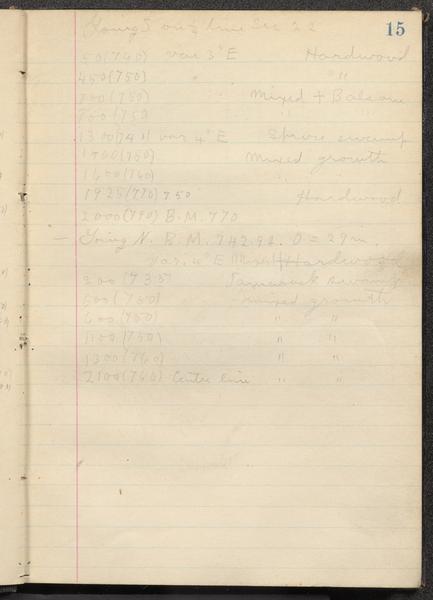 15
Going S on ¼ line Sec 22
50 (740) var 3° E Hardwood
450 (750) " "
700 (750) Mixed + Balsam
(750)
1300 (741) var 4° E Spruce swamp
1400 (750) Mixed growth
1600 (740) " "
1925 (770) 750 Hardwood
2000 (790) B.M. 770
— Going N. B.M. 742.92. 0 = 29 in.
var. 4° E Mixed Hardwood
300 (735) Tamarack swamp
500 (750) mixed growth
600 (750) " "
1100 (750) " "
1300 (760) " "
2100 (760) Centre line " "